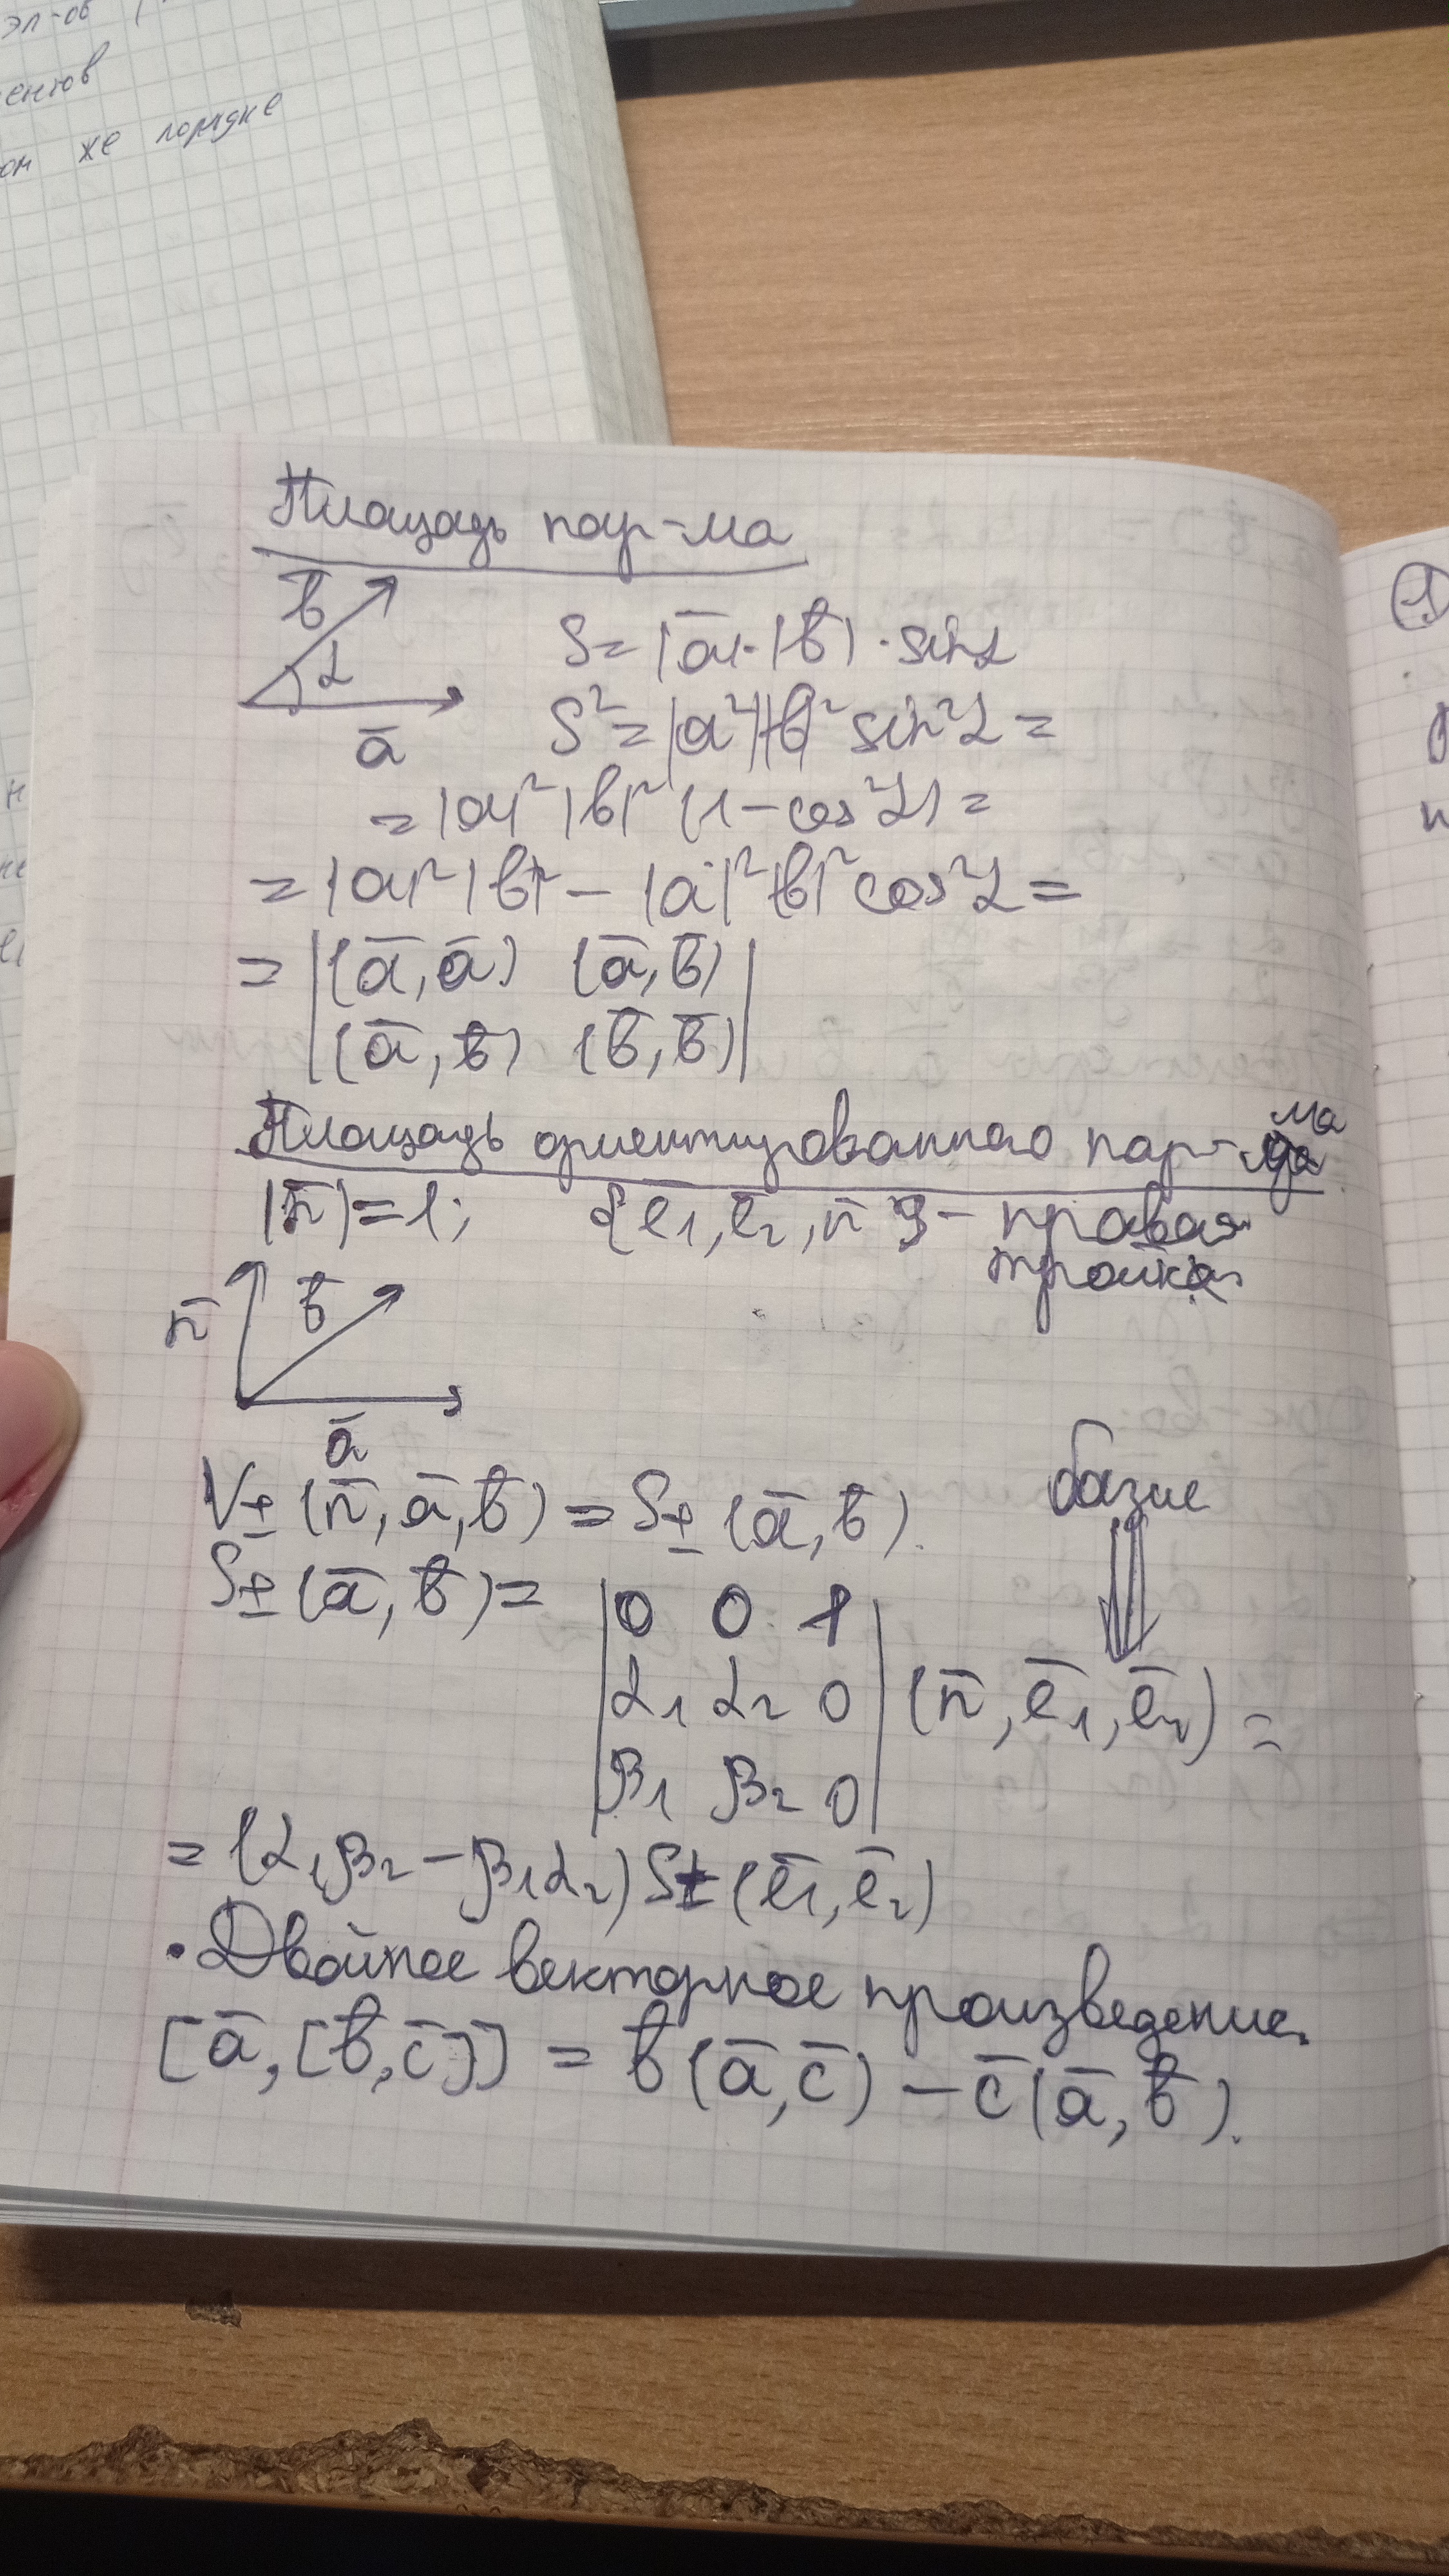 эл-ов
ентов
ом же порядке
Площадь пар-ма
b̄
α
ā
S = |ā|·|b̄|·sinα
S² = |a²||b|² sin²α =
= |a|² |b|² (1 - cos²α) =
= |a|² |b|² - |a|² |b|² cos²α =
= |(ā, ā) (ā, b̄)|
|(ā, b̄) (b̄, b̄)|
Площадь ориентированного пар-ма
|n̄| = 1; {ē₁, ē₂, n̄} - правая
тройка
n̄ b̄
ā
V± (n̄, ā, b̄) = S± (ā, b̄).
базис
S± (ā, b̄) = |0 0 1|
|α₁ α₂ 0| (n̄, ē₁, ē₂) =
|β₁ β₂ 0|
= (α₁β₂ - β₁α₂) S± (ē₁, ē₂)
• Двойное векторное произведение.
[ā, [b̄, c̄]] = b̄(ā, c̄) - c̄(ā, b̄).